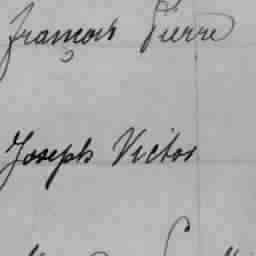 françois Pierre
Joseph Victor